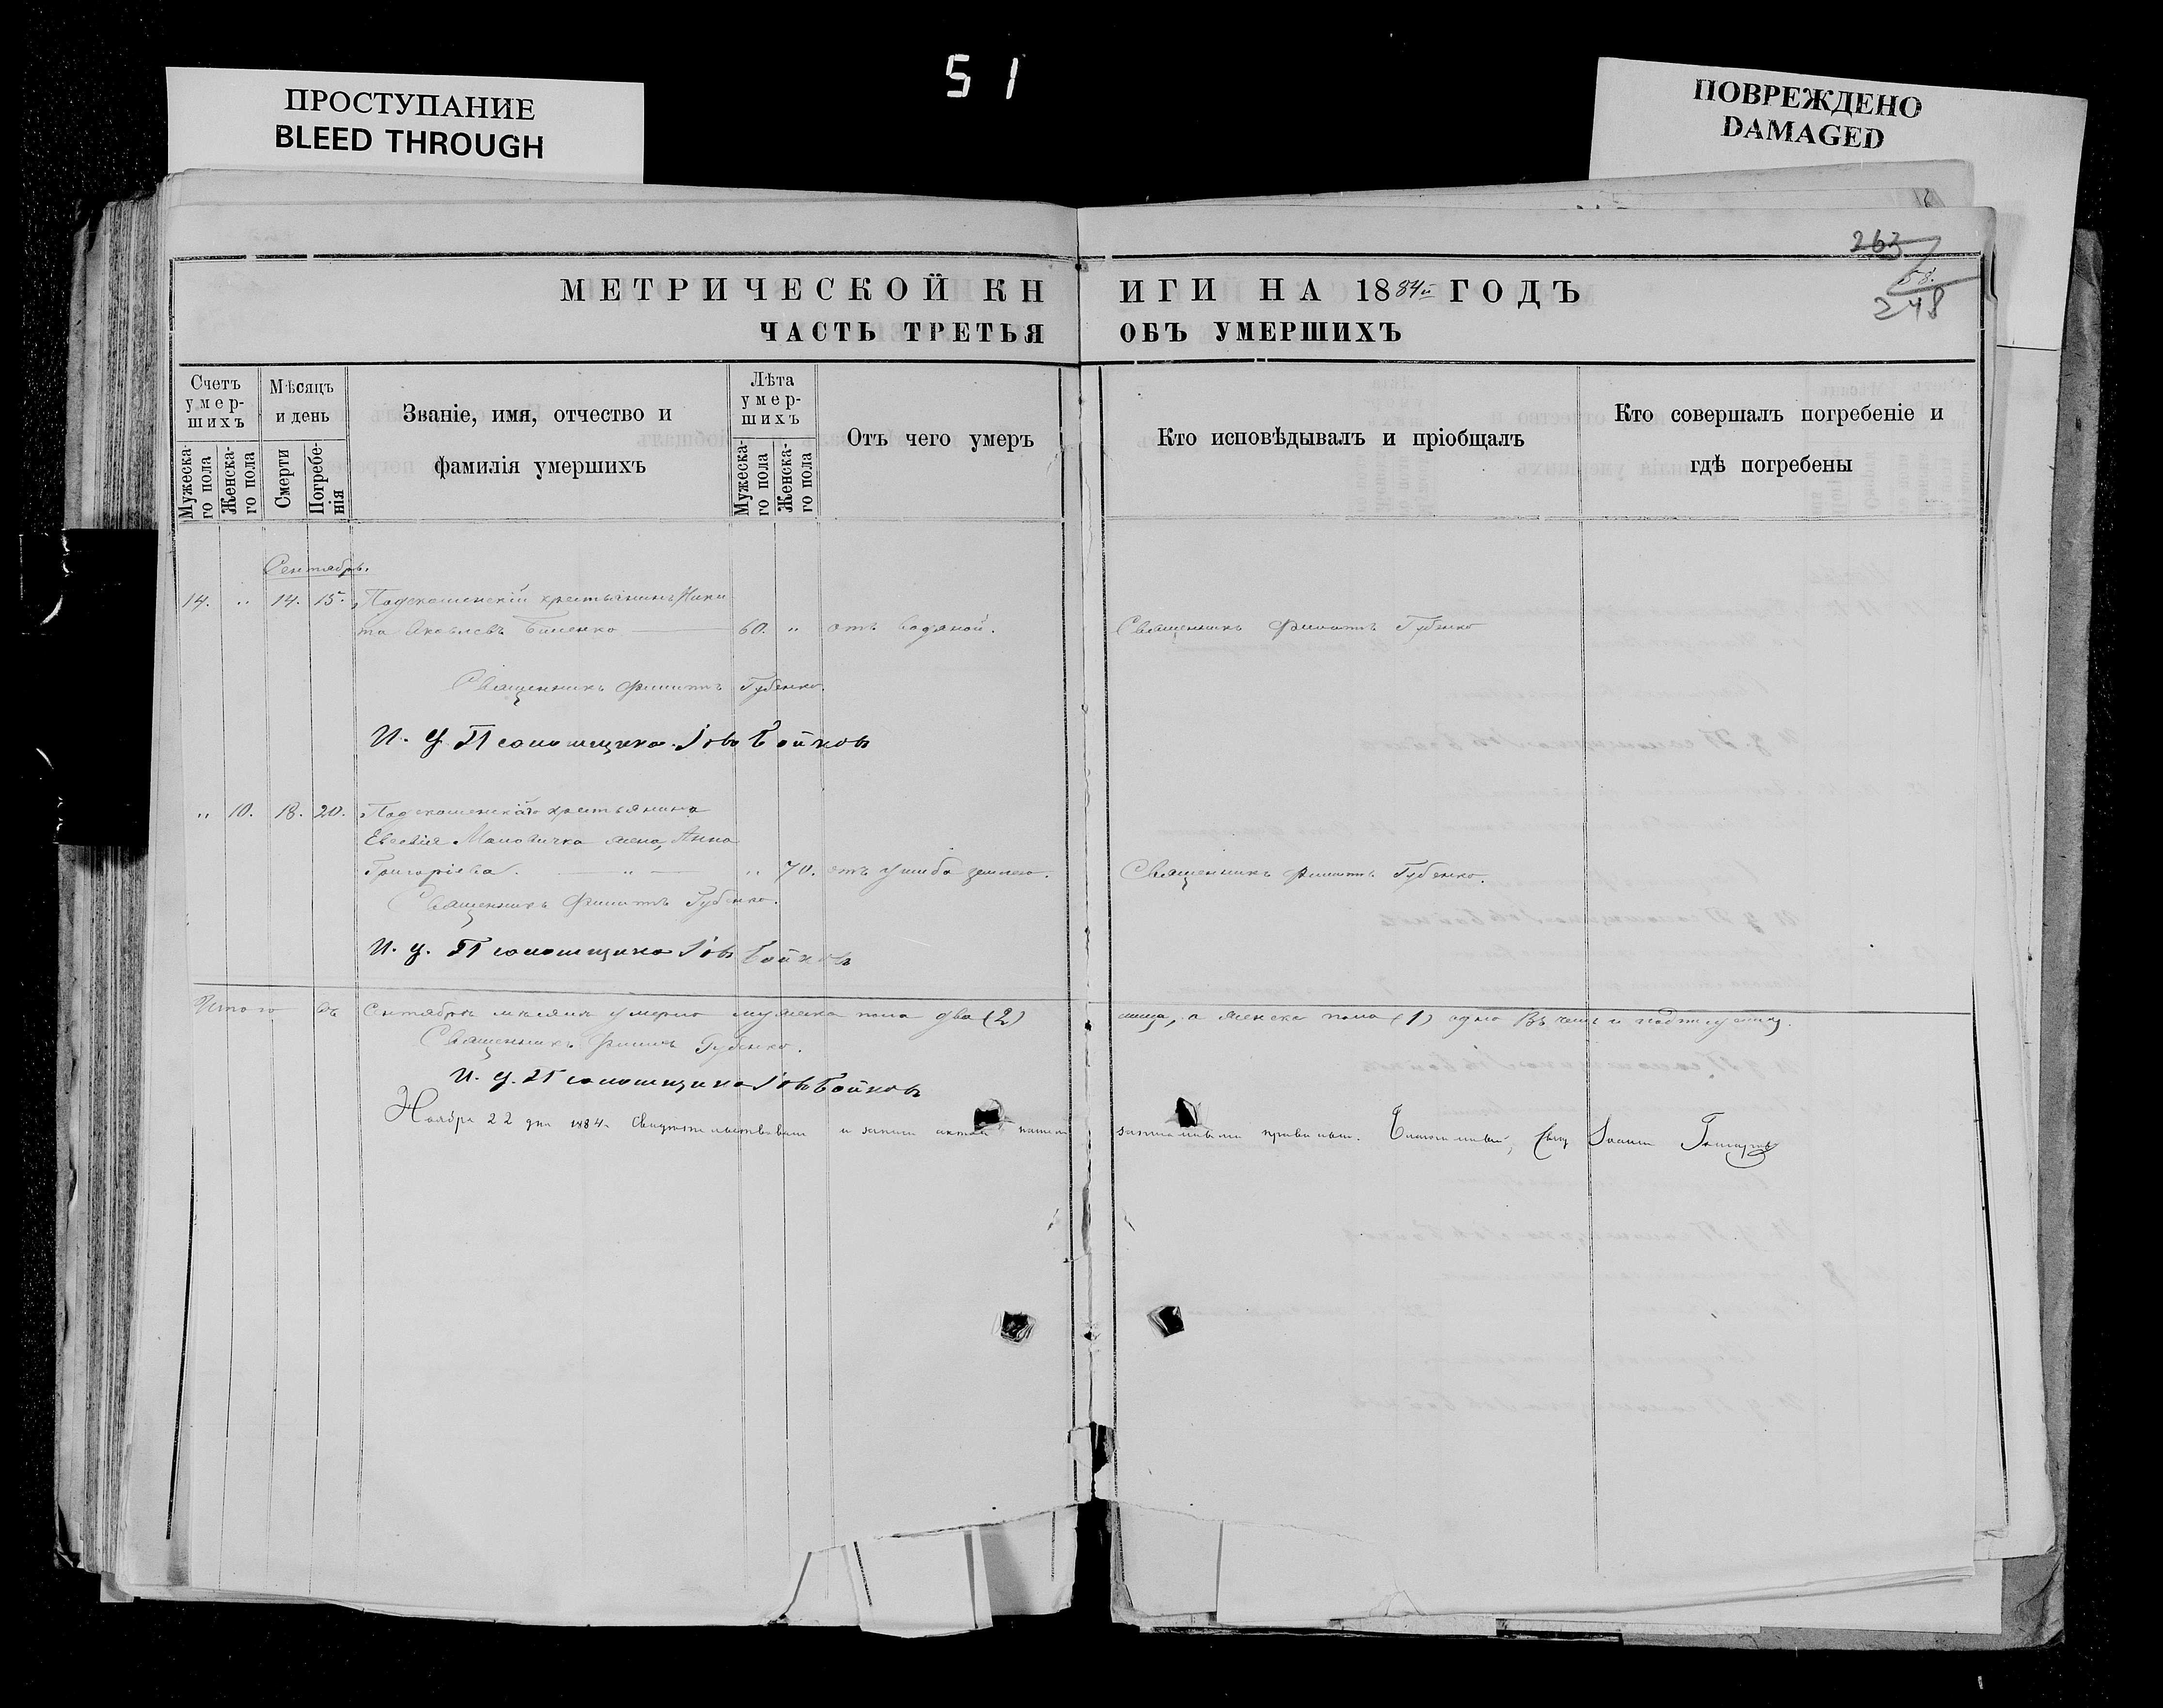 51
ПРОСТУПАНИЕ
BLEED THROUGH
ПОВРЕЖДЕНО
DAMAGED
263
58.
248
МЕТРИЧЕСКОЙ КНИГИ НА 1884й ГОДЪ
ЧАСТЬ ТРЕТЬЯ ОБЪ УМЕРШИХЪ
Счетъ умер-шихъ
Мужеска-го пола
Женска-го пола
Мѣсяцъ и день
Смерти
Погребе-нія
Званіе, имя, отчество и
фамилія умершихъ
Лѣта умер-шихъ
Мужеска-го пола
Женска-го пола
Отъ чего умеръ
Кто исповѣдывалъ и пріобщалъ
Кто совершалъ погребеніе и
гдѣ погребены
Сентябрь.
14. " 14. 15. крестьянинъ Ники
та Яковлевъ Биленко 60. " отъ водяной. Священникъ Филиппъ Губенко
Священникъ Филиппъ Губенко.
И. д. Псаломщика Іовъ Бойковъ
" 10. 18. 20. крестьянина
Евсевія жена, Анна
Григоріева. " " 70. отъ ушиба Священникъ Филиппъ Губенко.
Священникъ Филиппъ Губенко.
И. д. Псаломщика Іовъ Бойковъ
Итого въ Сентябрѣ мѣсяцѣ умерло мужеска пола два (2) лица, а женска пола (1) одно Въ чемъ и подписуемся.
Священникъ Филиппъ Губенко.
И. д. Псаломщика Іовъ Бойковъ
Ноября 22 дня 1884 Свидѣтельствовалъ и записи актовъ нашелъ правильн. Благочинный, Свящ